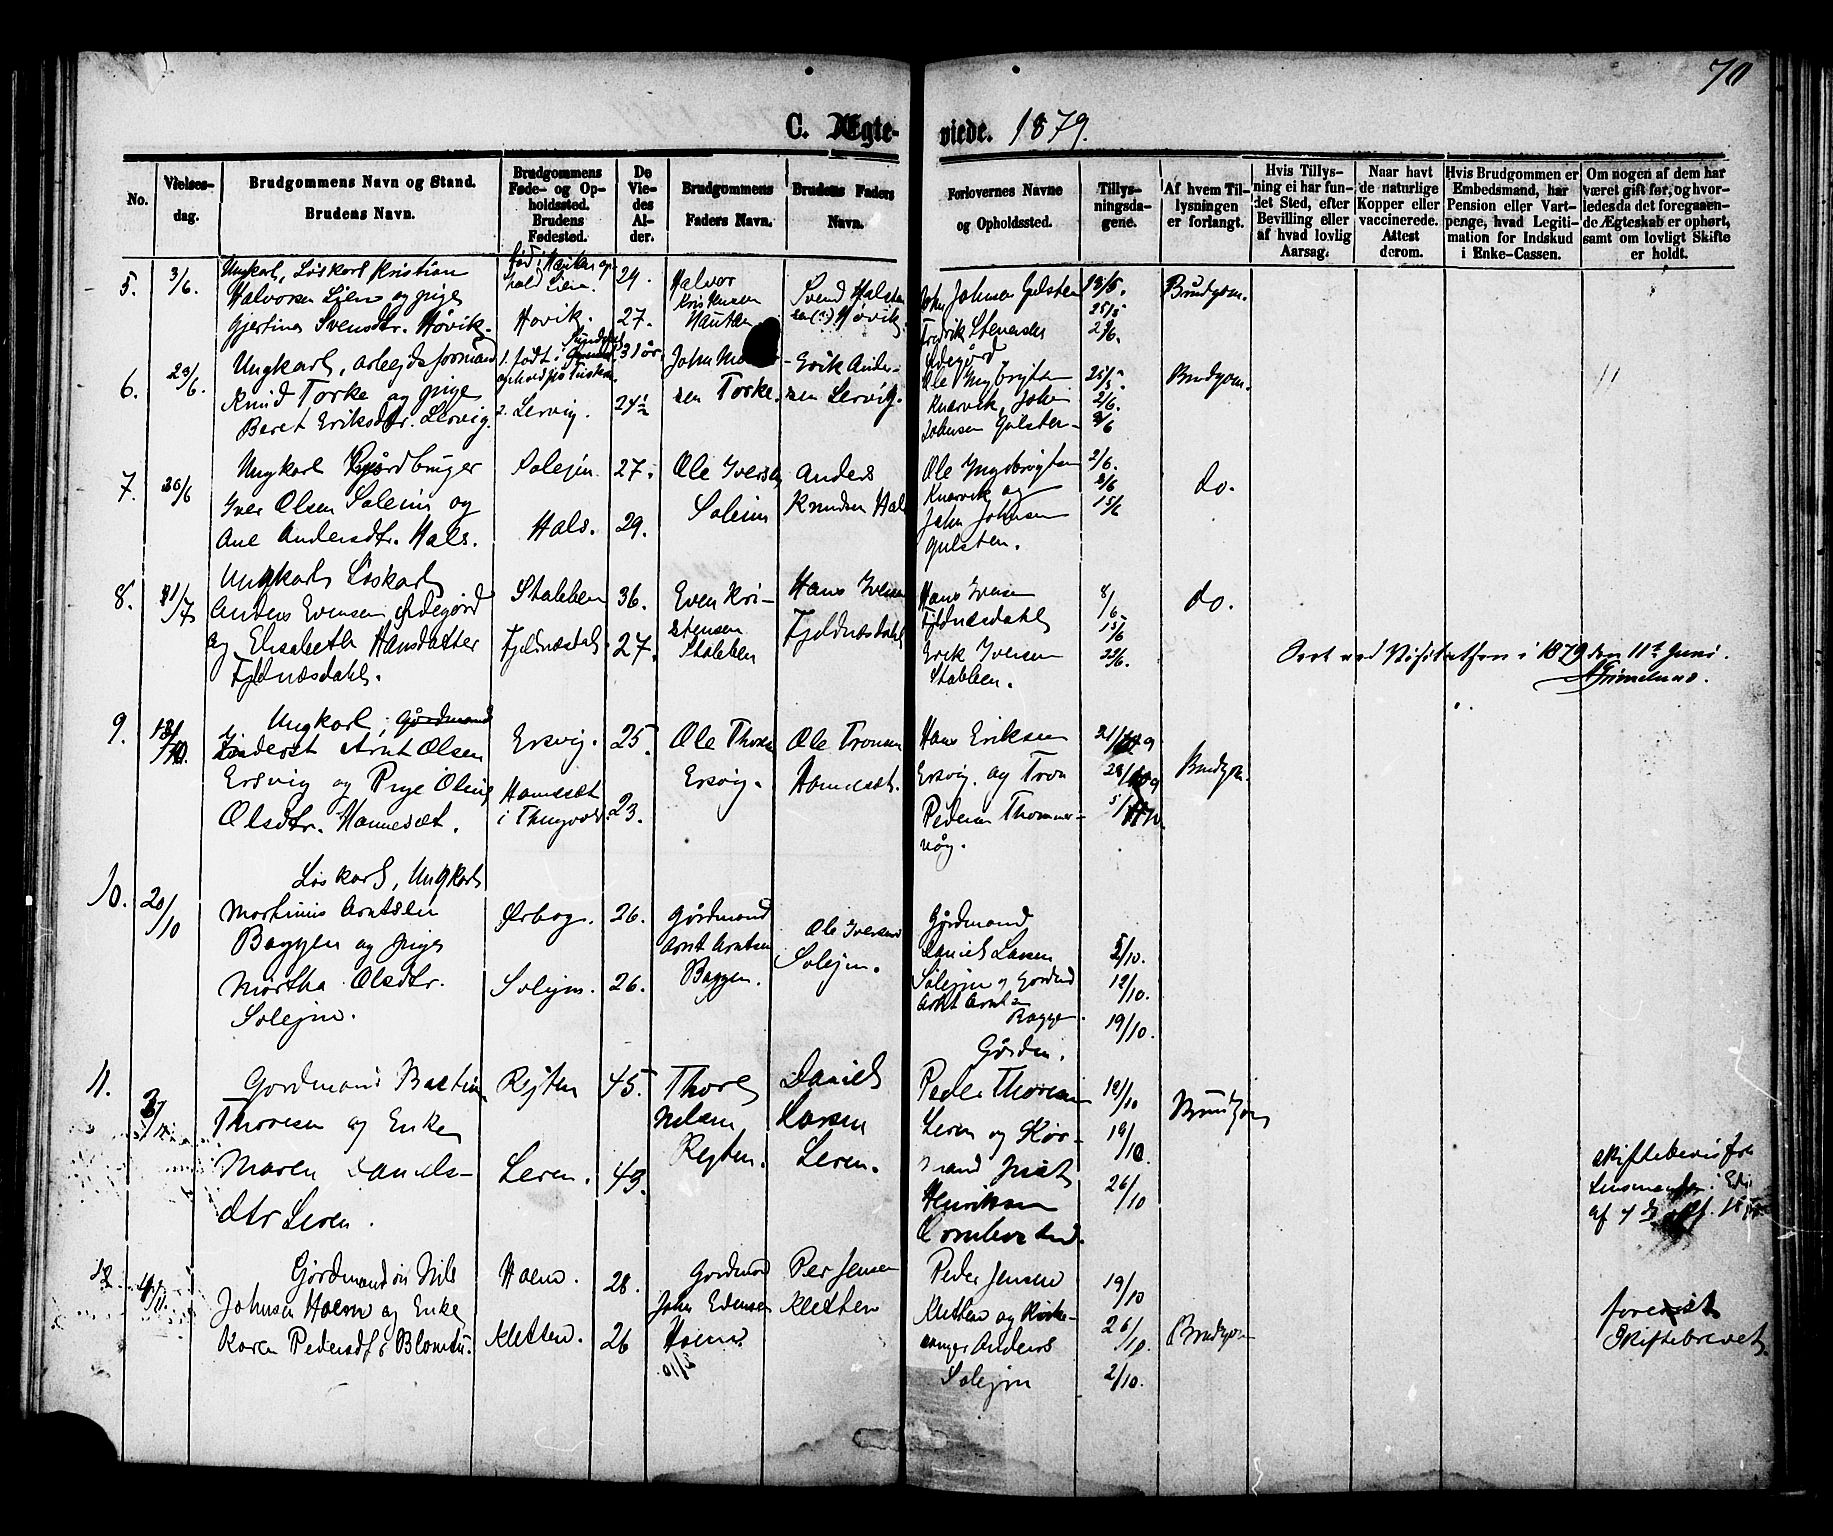 70
C. Ægteviede. 1879.
No.
Vielsesdag.
Brudgommens Navn og Stand.
Brudens Navn.
Brudgommens Føde- og Opholdssted.
Brudens Fødested.
De Viedes Alder.
Brudgommens Faders Navn.
Brudens Faders Navn.
Forlovernes Navne og Opholdssted.
Tillysningsdagene.
Af hvem Tillysningen er forlangt.
Hvis Tillysning ei har fundet Sted, efter Bevilling eller af hvad lovlig Aarsag.
Naar havt de naturlige Kopper eller vaccinerede. Attest derom.
Hvis Brudgommen er Embedsmand, har Pension eller Vartpenge, hvad Legitimation for Indskud i Enke-Cassen.
Om nogen af dem har været gift før, og hvorledes da det foregaaende Ægteskab er ophørt, samt om lovligt Skifte er holdt.
5.
3/6.
Ungkarl, Løskarl Kristian
Halvorsen Lien og pige
Gjertine Svensdtr. Hovik.
Hovik.
29.
27.
Halvor
Kristensen
Svend Halsten
sen (?) Hovik.
John Johnsen Gulsten
Fredrik Stenersen
Ødegård
25/5
2/6.
Brudgom.
6.
20/6
Ungkarl, arbejdsformand
Knud Torke og pige
Beret Eriksdtr. Lervig.
1. født i
2. Lervig.
31 år
24½
John
sen Torke.
Erik Andersen Lervig.
Ole Ingbrigtsen
Knarvik, John
Johnsen Gulsten
25/5
2/6.
8/6
Brudgom.
7.
20/6
Ungkarl Gårdbruger
Iver Olsen Solejm og
Ane Andersdtr. Hals.
Solejm
Hals.
27.
29.
Ole Iversen
Solejm
Anders
Knudsen Hals
Ole Ingebrigtsen
Knarvik og
John Johnsen
Gulsten.
2/6.
8/6
15/6
do.
8.
21/7
Ungkarl Løskarl
Anders Evensen Ødegård
og Elisabeth Hansdatter
Fjeldnæsdahl.
Stabben
Fjeldnæsdahl.
36.
27.
Even Kristensen
Stabben
Hans Iversen
Fjeldnæsdahl
Hans Iversen
Fjeldnæsdahl
Erik Iversen
Stabben.
8/6
15/6
22/6.
do.
Seet ved Visitatsen i 1879 den 11te Juni.
Grimelund.
9.
Ungkarl, Gårdmand
Arnt Olsen
Ersvig og Pige Oline
Olsdtr. Hannesæt.
Ersvig.
Hannesæt
i Thingvold.
25.
23.
Ole Thoresen
Ersvig.
Ole Tronsen
Hannesæt.
Hans Eriksen
Ersvig. og Tron
Pedersen Thommervåg.
21/9
28/9
5/10.
Brudgom.
10.
20/10
Løskarl, Ungkarl
Martinus Arntsen
Baggen og pige
Martha Olsdtr.
Solejm.
Ørbog.
Solejm.
26.
26.
Gårdmand
Arnt Arntsen
Baggen.
Ole Iversen
Solejm.
Gårdmand
Daniel Larsen
Solejm og Gårdmd
Arnt Arntsen
Baggen.
5/10.
12/10.
19/10.
11.
Gårdmand Bastian
Thoresen og Enke
Maren Danielsdtr Leren.
Rejten
Leren.
45.
43.
Thore
Nilsen
Rejten.
Daniel
Larsen
Leren.
Gården.
Peder Thoresen
Leren og
Henriksen
12/10
19/10.
26/10
Brudgom
Skiftebevis fra
Lensmanden i
12.
Gårdmandssøn Nils
Johnsen Hoem og Enke
Karen Pedersdtr
Hoem.
Kletten.
28.
26
Gårdmand
John Edensen
Hoem.
Per Jensen
Kletten
Peder Jensen
Kletten og Kirkesanger Anders
Solejm
19/10
26/10
2/10.
Brudgom
forevist
Skiftebrevet.